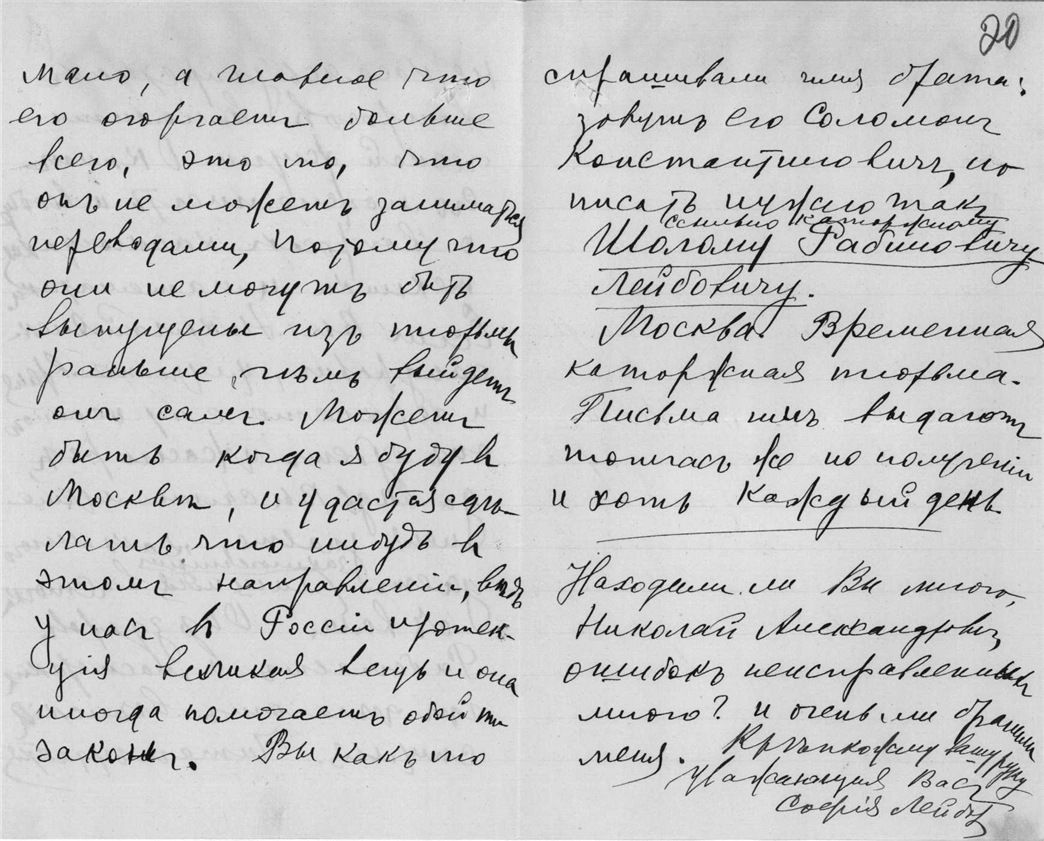 мало, а главное что
его огорчаетъ больше
всего, это то, что
онъ не можетъ заниматься
переводами, потому что
они не могутъ быть
выпущены изъ тюрьмы
раньше, чѣмъ выйдетъ
онъ самъ. Можетъ
быть когда я буду въ
Москвѣ, и удастся сдѣ-
лать что нибудь въ
этомъ направленіи, вѣдь
у насъ въ Россіи протек-
ція великая вещь и она
иногда помогаетъ обойти
законъ. Вы какъ то
20
спрашивали имя брата:
зовутъ его Соломонъ
Константиновичъ, но
писать нужно такъ
ссыльно каторжному
Шолому Рабиновичу
Лейбовичу.
Москва. Временная
каторжная тюрьма.
Письма имъ выдаютъ
тотчасъ же по полученіи
и хоть каждый день
Находили ли Вы много,
Николай Александровичъ,
ошибокъ неисправленныхъ
мною? и очень ли бранили
меня. Крѣпко жму вашу руку
уважающая Васъ
Софія